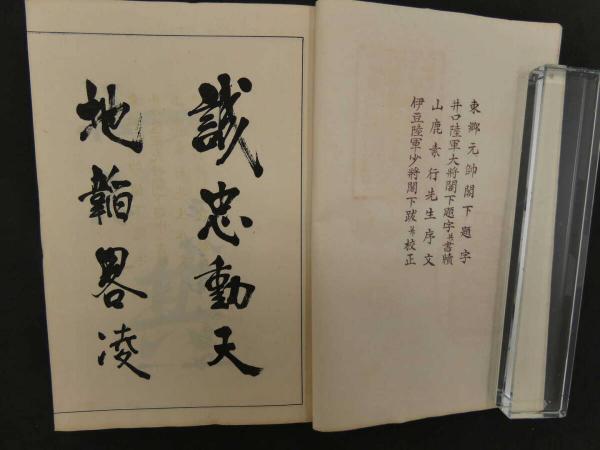 東郷元帥閣下題字
井口陸軍大将閣下題字並書牘
山鹿素行先生序文
伊豆陸軍少将閣下跋並校正
誠忠動天
地韜畧凌